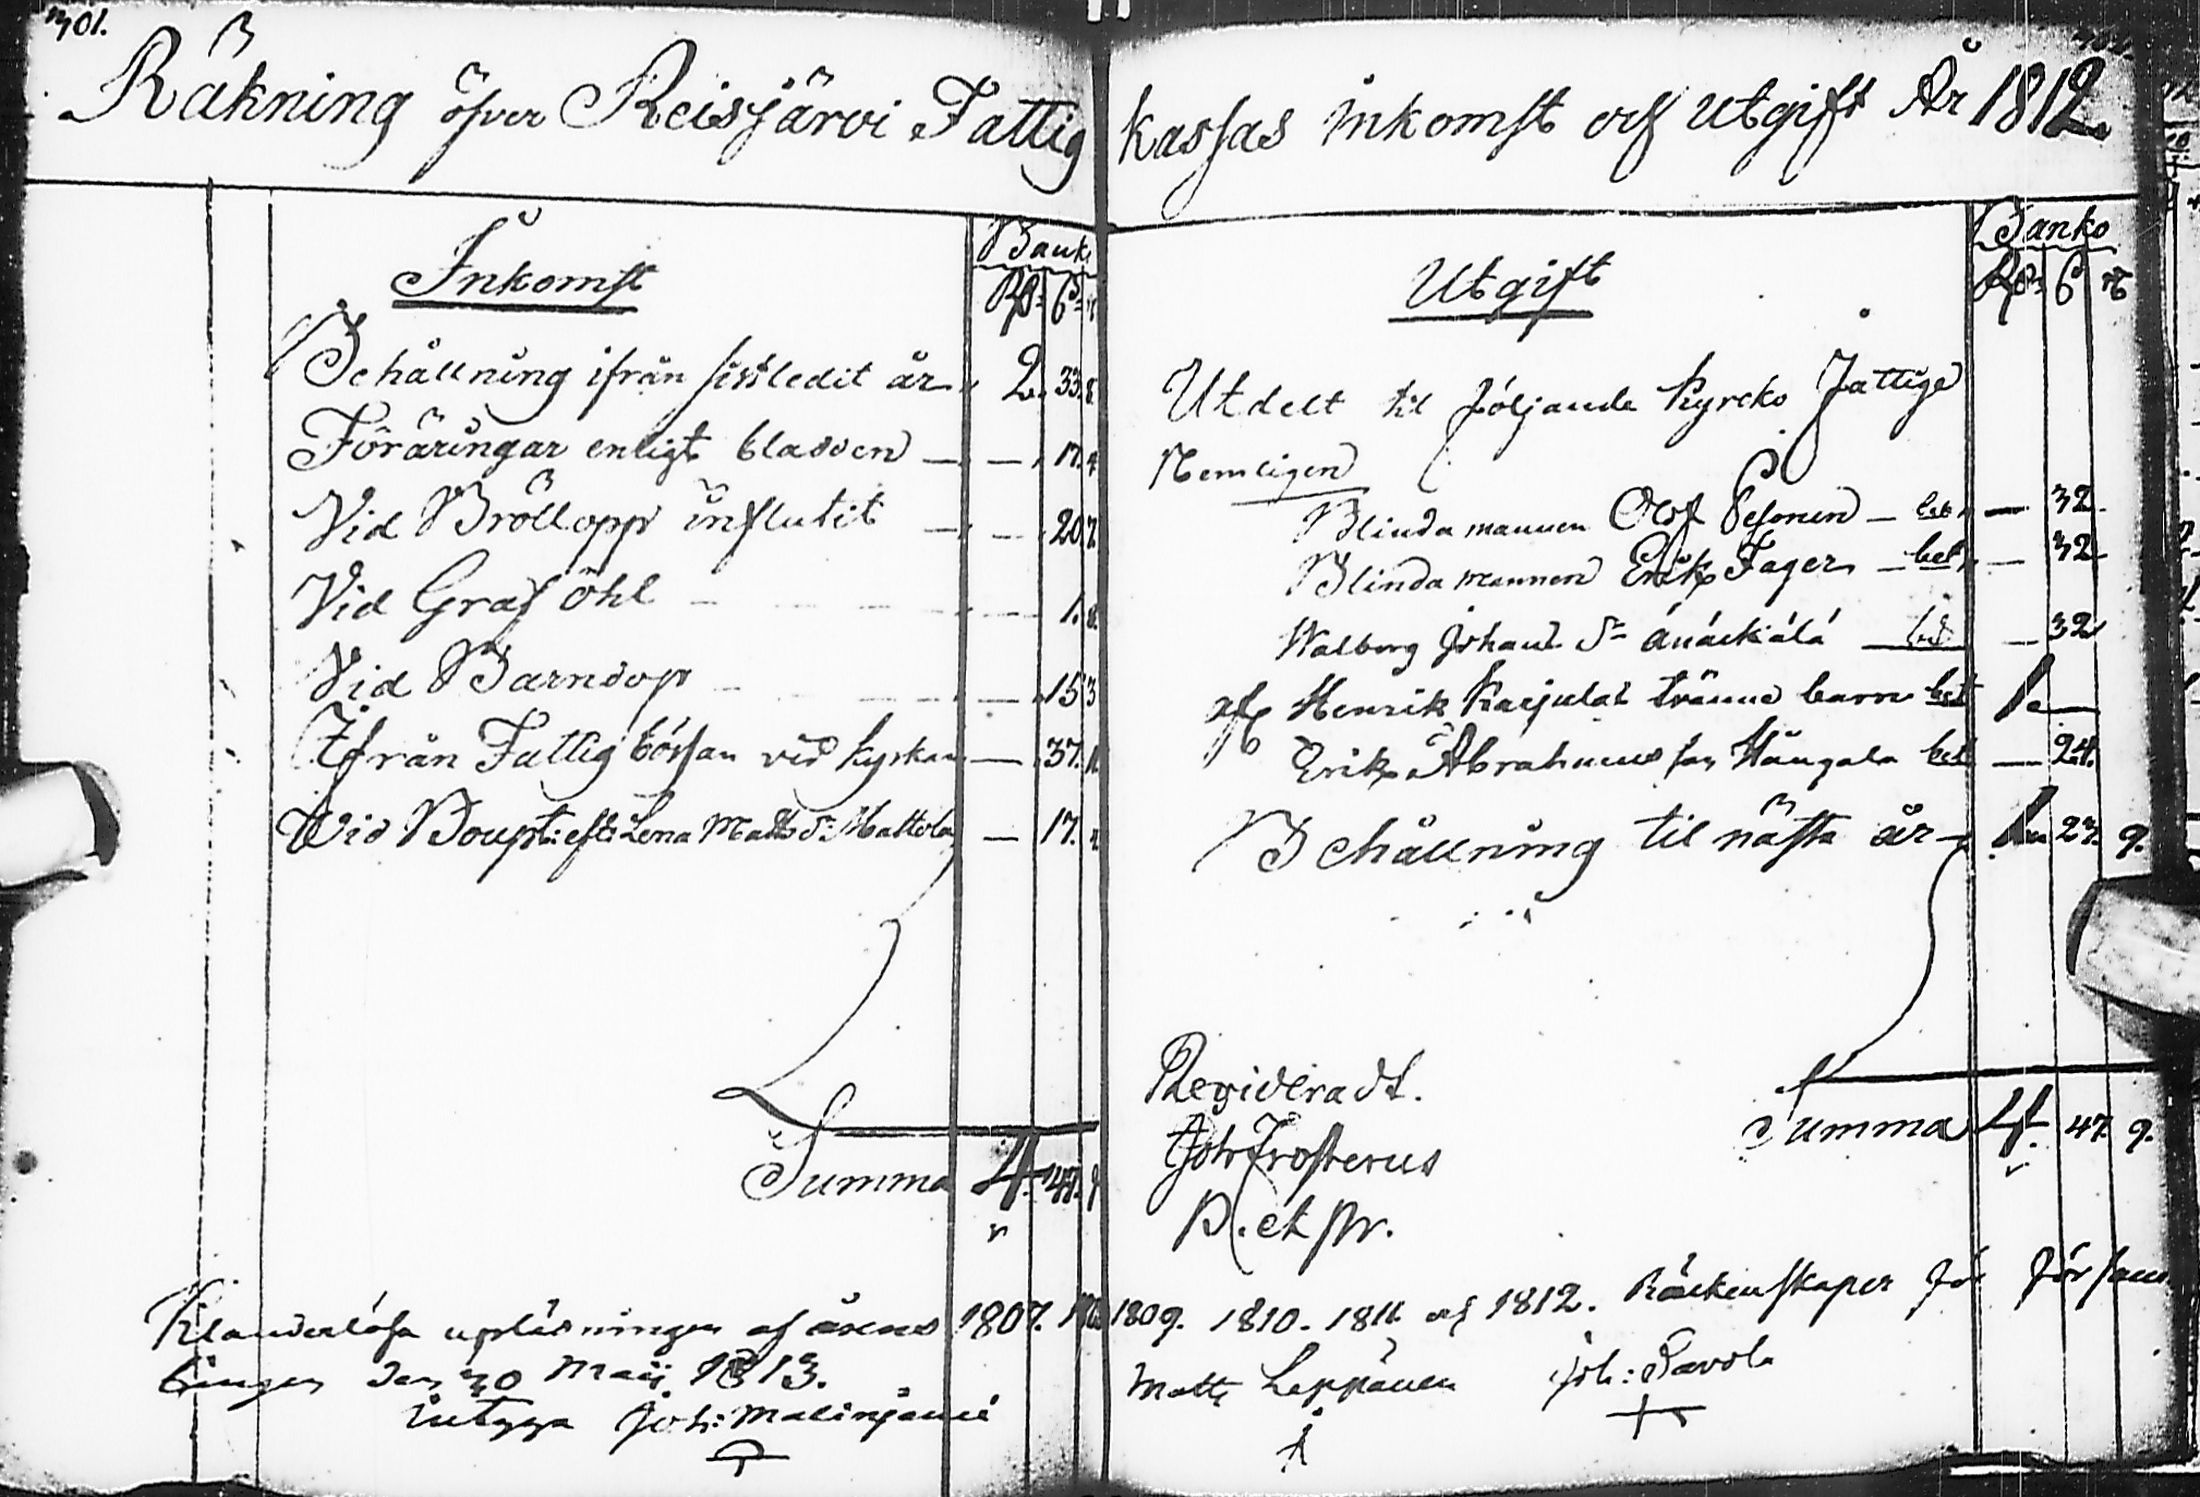 301.
Räkning öfver Reisjärvi Fattig kassas inkomst och utgift År 1812.
Inkomst
Bank
Rd: S:
Behållning ifrån sistledit år 2. 33. 8
Föräringar enligt bladden — — 17. 4
Vid Bröllopp influtit — — 20. 7
Vid Graföhl — — 1. 8.
Vid Barndop — — 15 3
Ifrån Fattig bössan vid kyrkan — 37. 11
Wid Boupt: eft: Lena Matts dr: Mattola — 17. 4
Summa 4. 47. 9
Utgift
Banko
Rd: S rs
Utdelt til följande Kyrcko Fattige
Nemligen
Blinda mannen Olof Pesonen — bet — 32.
Blinda mannen Erik Fager — bet — 32
Walborg Johans dr — 32
afl Henrik Karjulas tvänne barn bet 1. —
Erik Abrahams son Hängala bet — 24.
Behållning til nästa år — 1. 23. 9.
Summa 4. 47. 9.
Revideradt.
Joh Frosterus
P. et Pr.
Klanderlösa upläsningen af årens 1807. 1808 1809. 1810. 1811. och 1812. Räckenskaper för församlingen den 30 Maij 1813.
intyga Joh: Malinjanni Matts Leppänen Joh: Savola